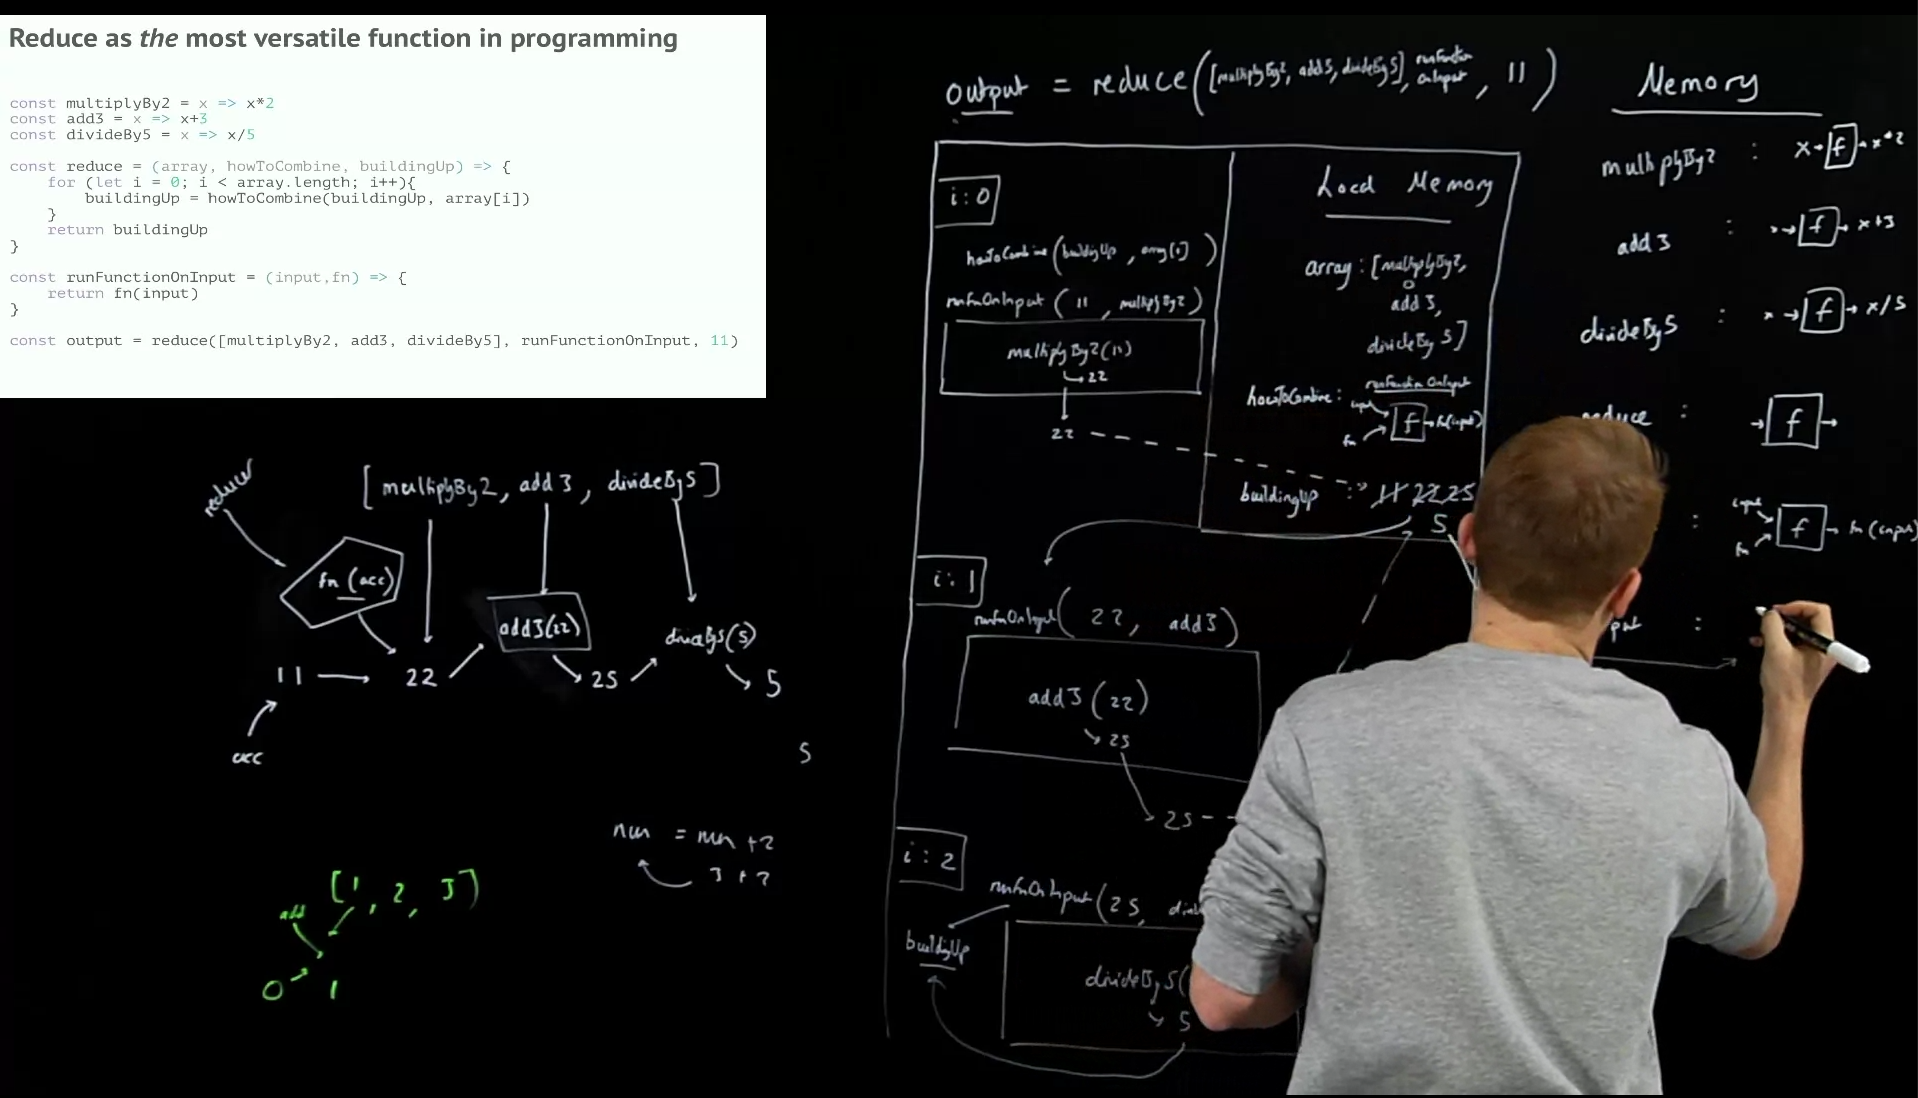 Reduce as the most versatile function in programming
const multiplyBy2 = x => x*2
const add3 = x => x+3
const divideBy5 = x => x/5
const reduce = (array, howToCombine, buildingUp) => {
for (let i = 0; i < array.length; i++){
buildingUp = howToCombine(buildingUp, array[i])
}
return buildingUp
}
const runFunctionOnInput = (input,fn) => {
return fn(input)
}
const output = reduce([multiplyBy2, add3, divideBy5], runFunctionOnInput, 11)
reducer
[multiplyBy2, add3, divideBy5]
fn (acc)
add3(22)
divideBy5(5)
11 → 22
25
5
acc
5
num = num +2
3 + 2
[1, 2, 3]
add
0 → 1
output = reduce([multiplyBy2, add3, divideBy5], runFunction
onInput, 11)
i: 0
howToCombine (buildingUp, array[0])
runFnOnInput (11, multiplyBy2)
multiplyBy2(11)
↳ 22
22
Local Memory
array: [multiplyBy2,
0
add3,
divideBy5]
howToCombine: runFunctionOnInput
input
fn
f → fn(input)
buildingUp : 11 22 25
5
i: 1
runFnOnInput( 22, add3)
add3 (22)
↳ 25
25
i: 2
runFnOnInput(25,
buildingUp
divideBy5(
↳ 5
Memory
multiplyBy2 : x → f → x*2
add3 : x → f → x+3
divideBy5 : x → f → x/5
reduce : → f →
: input
fn
f → fn(input)
put :